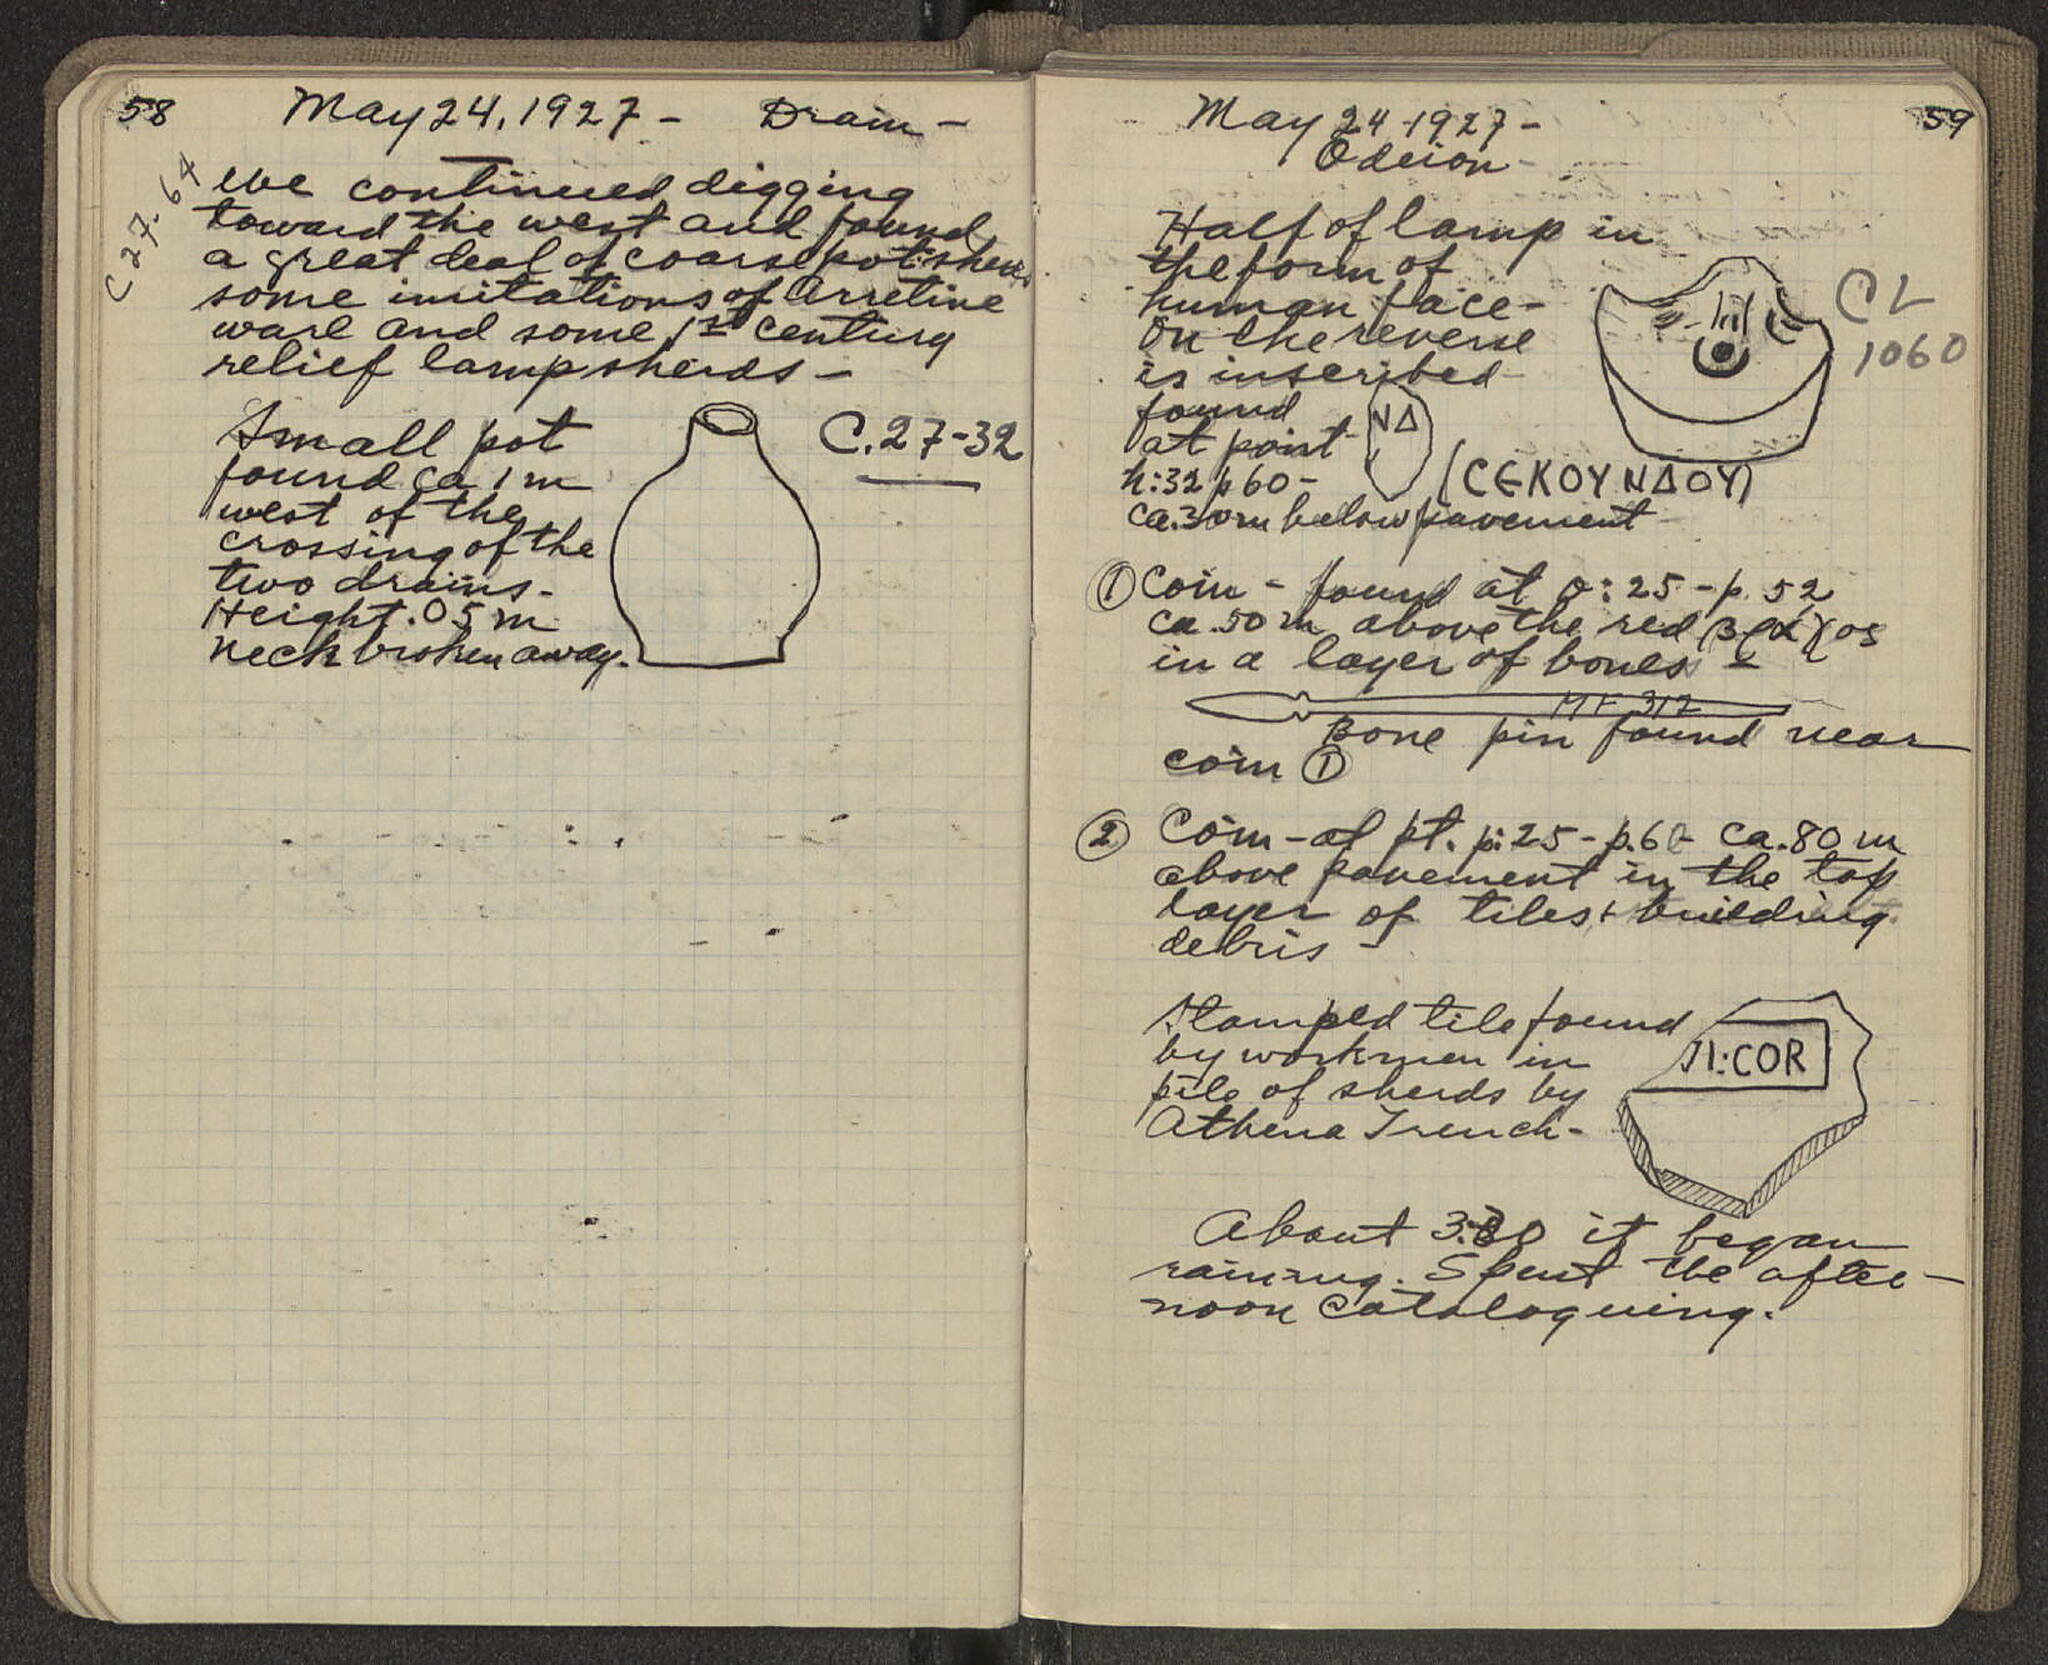 58 May 24, 1927 - Drain -
C 27. 64
We continued digging
toward the west and found
a great deal of coarse pot sherds
some imitations of Arretine
ware and some 1st century
relief lamp sherds -
Small pot
found ca 1 m
west of the
crossing of the
two drains.
Height .05 m
neck broken away.
C.27-32
May 24 - 1927 -
59
Odeion -
Half of lamp in
the form of
human face -
On the reverse
is inscribed
found
at point
h:32 p 60 -
ca .30 m below pavement
ΝΔ
(CЄΚΟΥΝΔΟΥ)
CL
1060
① Coin - found at o: 25 - p. 52
ca .50 m above the red
in a layer of bones -
MF 317
Bone pin found near
coin ①
② Coin - at pt. p: 25 - p. 60 ca .80 m
above pavement in the top
layer of tiles + building
debris -
Stamped tile found
by workmen in
pile of sherds by
Athena Trench -
:COR
About 3:30 it began
raining. Spent the after-
noon cataloguing.